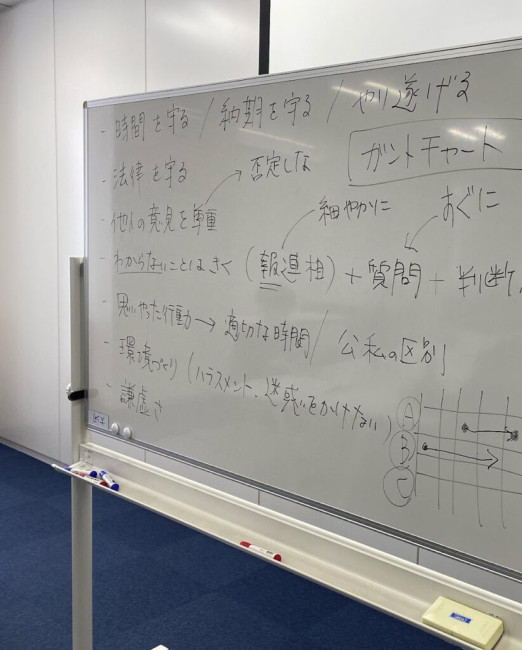 - 時間を守る / 納期を守る / やり遂げる
ガントチャート
- 法律を守る
否定しな
- 他人の意見を尊重
細やかに
すぐに
- わからないことはきく (報連相) + 質問 + 判断
- 思いやった行動 → 適切な時間 / 公私の区別
- 環境づくり (ハラスメント、迷惑をかけない)
- 謙虚さ
A
B
C